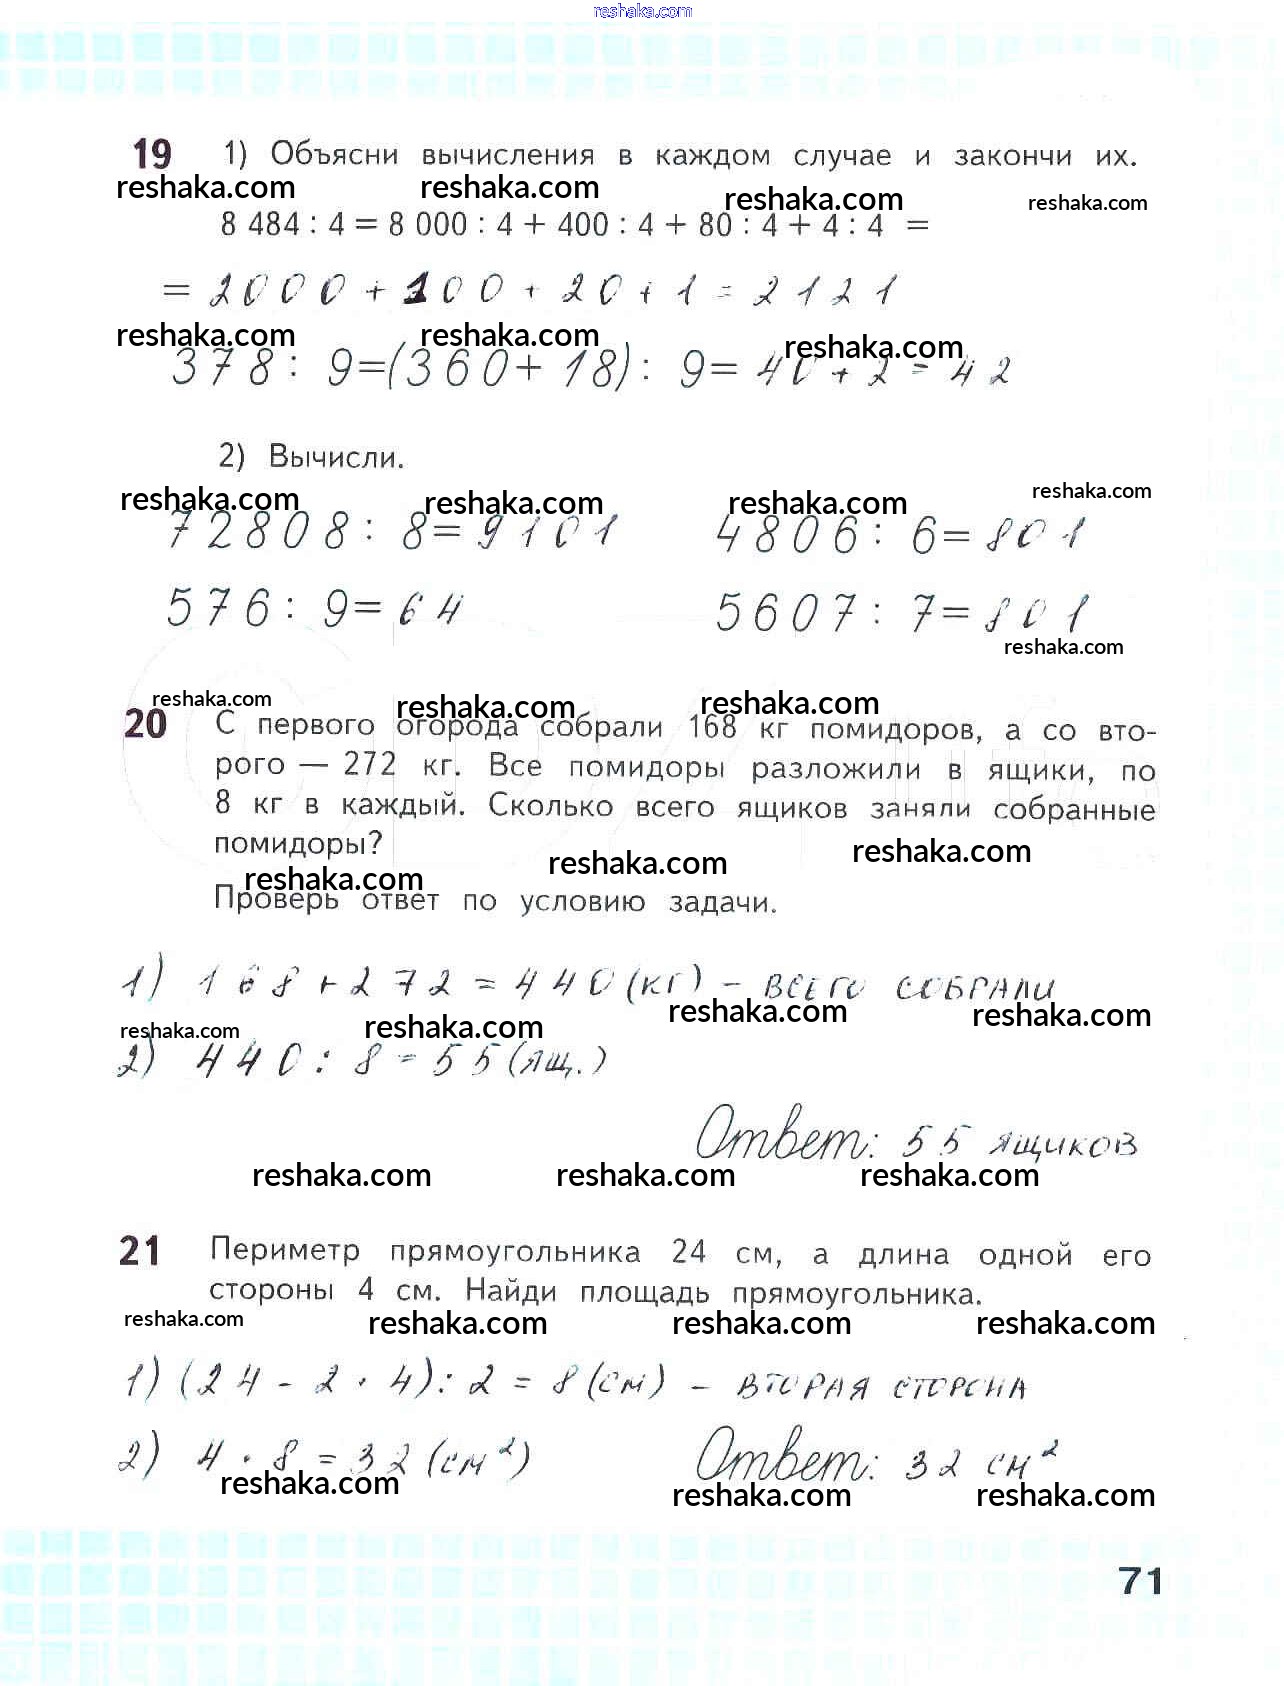 reshaka.com
19 1) Объясни вычисления в каждом случае и закончи их.
reshaka.com reshaka.com reshaka.com reshaka.com
8 484 : 4 = 8 000 : 4 + 400 : 4 + 80 : 4 + 4 : 4 =
= 2000 + 100 + 20 + 1 = 2121
reshaka.com reshaka.com reshaka.com
378 : 9=(360+18) : 9= 40 + 2 = 42
2) Вычисли.
reshaka.com reshaka.com reshaka.com reshaka.com
72808 : 8= 9101 4806 : 6= 801
576 : 9= 64 5607 : 7= 801
reshaka.com
reshaka.com reshaka.com reshaka.com
20 С первого огорода собрали 168 кг помидоров, а со вто-
рого — 272 кг. Все помидоры разложили в ящики, по
8 кг в каждый. Сколько всего ящиков заняли собранные
помидоры?
reshaka.com reshaka.com reshaka.com
Проверь ответ по условию задачи.
1) 168+272 = 440 (кг) - ВСЕГО СОБРАЛИ
reshaka.com reshaka.com reshaka.com reshaka.com
2) 440 : 8 = 55 (ящ.)
Ответ: 55 ящиков
reshaka.com reshaka.com reshaka.com
21 Периметр прямоугольника 24 см, а длина одной его
стороны 4 см. Найди площадь прямоугольника.
reshaka.com reshaka.com reshaka.com reshaka.com
1) (24 - 2 · 4) : 2 = 8 (см) - ВТОРАЯ СТОРОНА
2) 4 · 8 = 32 (см²) Ответ: 32 см²
reshaka.com reshaka.com reshaka.com
71